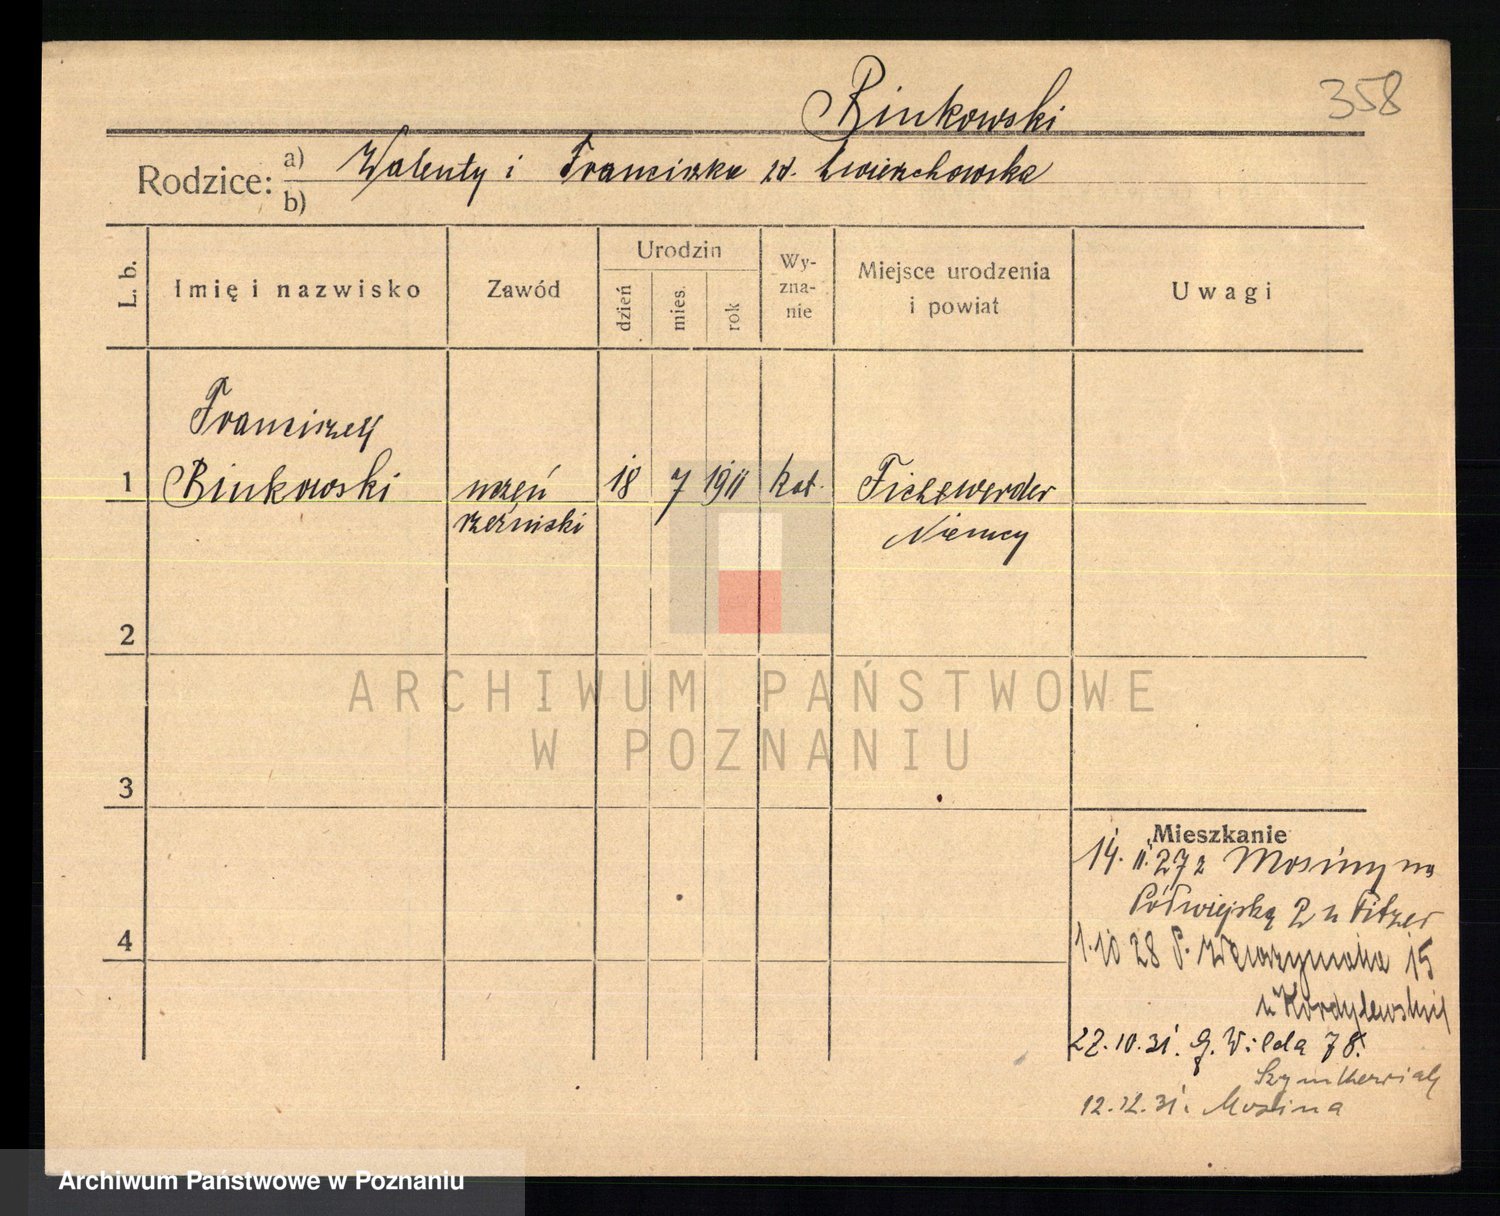 Binkowski
358
Rodzice: a) Walenty i Franciszka zd. Zwierzchowska
b)
L. b.
Imię i nazwisko
Zawód
Urodzin
dzień
mies.
rok
Wy-
zna-
nie
Miejsce urodzenia
i powiat
Uwagi
Franciszek
1 Binkowski uczeń 18 7 1911 kat. Fichewerder
rzeźnicki Niemcy
2
ARCHIWUM PAŃSTWOWE
W POZNANIU
3
Mieszkanie
14. 11. 27 z Mosiny na
Półwiejską 2 u Fitzer
1.10 28 P. Wawrzyniaka 15
u Kordylewskiej
22.10.31. G. Wilda 78.
4
12.12.31. Mosina
Archiwum Państwowe w Poznaniu